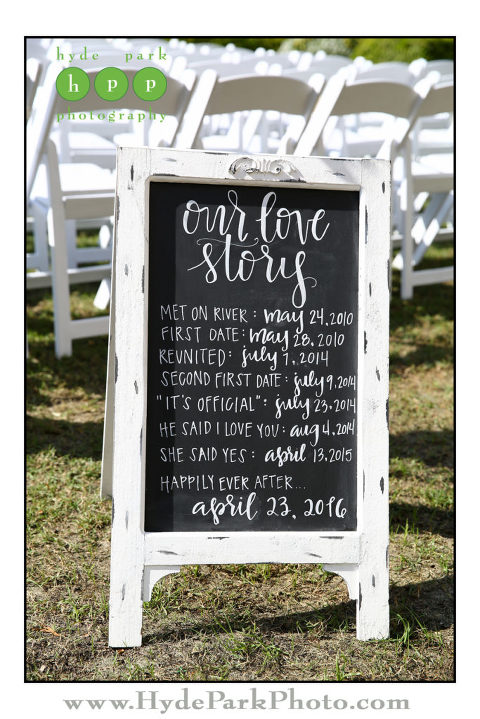 hyde park
h p p
photography
our love
story
MET ON RIVER: may 24, 2010
FIRST DATE: may 28, 2010
REUNITED: july 7, 2014
SECOND FIRST DATE: july 9, 2014
"IT'S OFFICIAL": july 23, 2014
HE SAID I LOVE YOU: aug 4, 2014
SHE SAID YES: april 13, 2015
HAPPILY EVER AFTER...
april 23, 2016
www.HydeParkPhoto.com